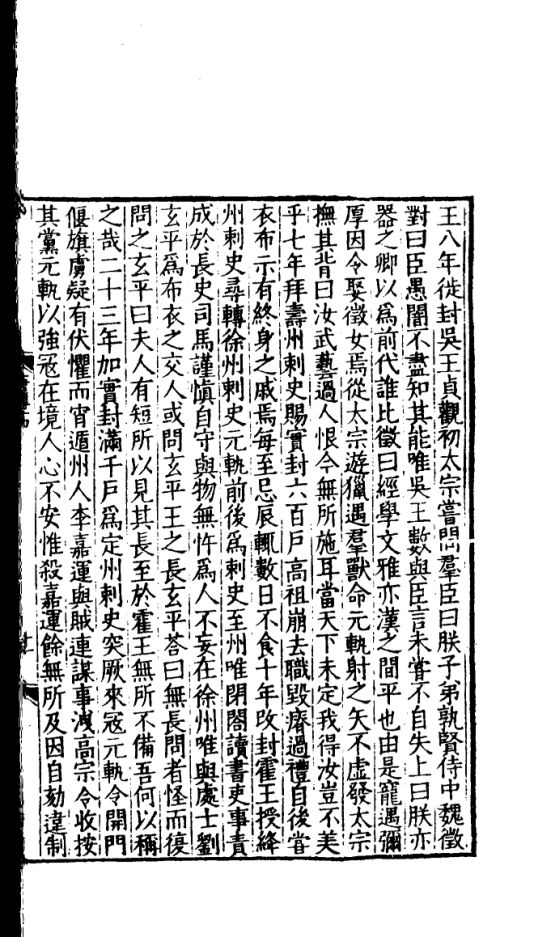 王八年徙封吳王貞觀初太宗嘗問羣臣曰朕子弟孰賢侍中魏徵
對曰臣愚闇不盡知其能唯吳王數與臣言未嘗不自失上曰朕亦
器之卿以爲前代誰比徵曰經學文雅亦漢之間平也由是寵遇彌
厚因令娶徵女焉從太宗遊獵遇羣獸命元軌射之矢不虛發太宗
撫其背曰汝武藝過人恨今無所施耳當天下未定我得汝豈不美
乎七年拜壽州刺史賜實封六百戶高祖崩去職毀瘠過禮自後嘗
衣布示有終身之戚焉每至忌辰輒數日不食十年改封霍王授絳
州刺史尋轉徐州刺史元軌前後爲刺史至州唯閉閤讀書吏事責
成於長史司馬謹愼自守與物無忤爲人不妄在徐州唯與處士劉
玄平爲布衣之交人或問玄平王之長玄平荅曰無長問者怪而復
問之玄平曰夫人有短所以見其長至於霍王無所不備吾何以稱
之哉二十三年加實封滿千戶爲定州刺史突厥來寇元軌令開門
偃旗虜疑有伏懼而宵遁州人李嘉運與賊連謀事洩高宗令收按
其黨元軌以強寇在境人心不安惟殺嘉運餘無所及因自劾違制